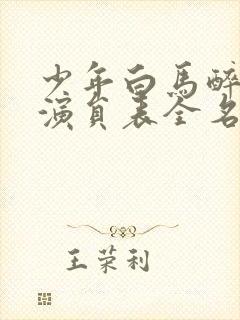 少年白马醉
演员表全名
王荣利